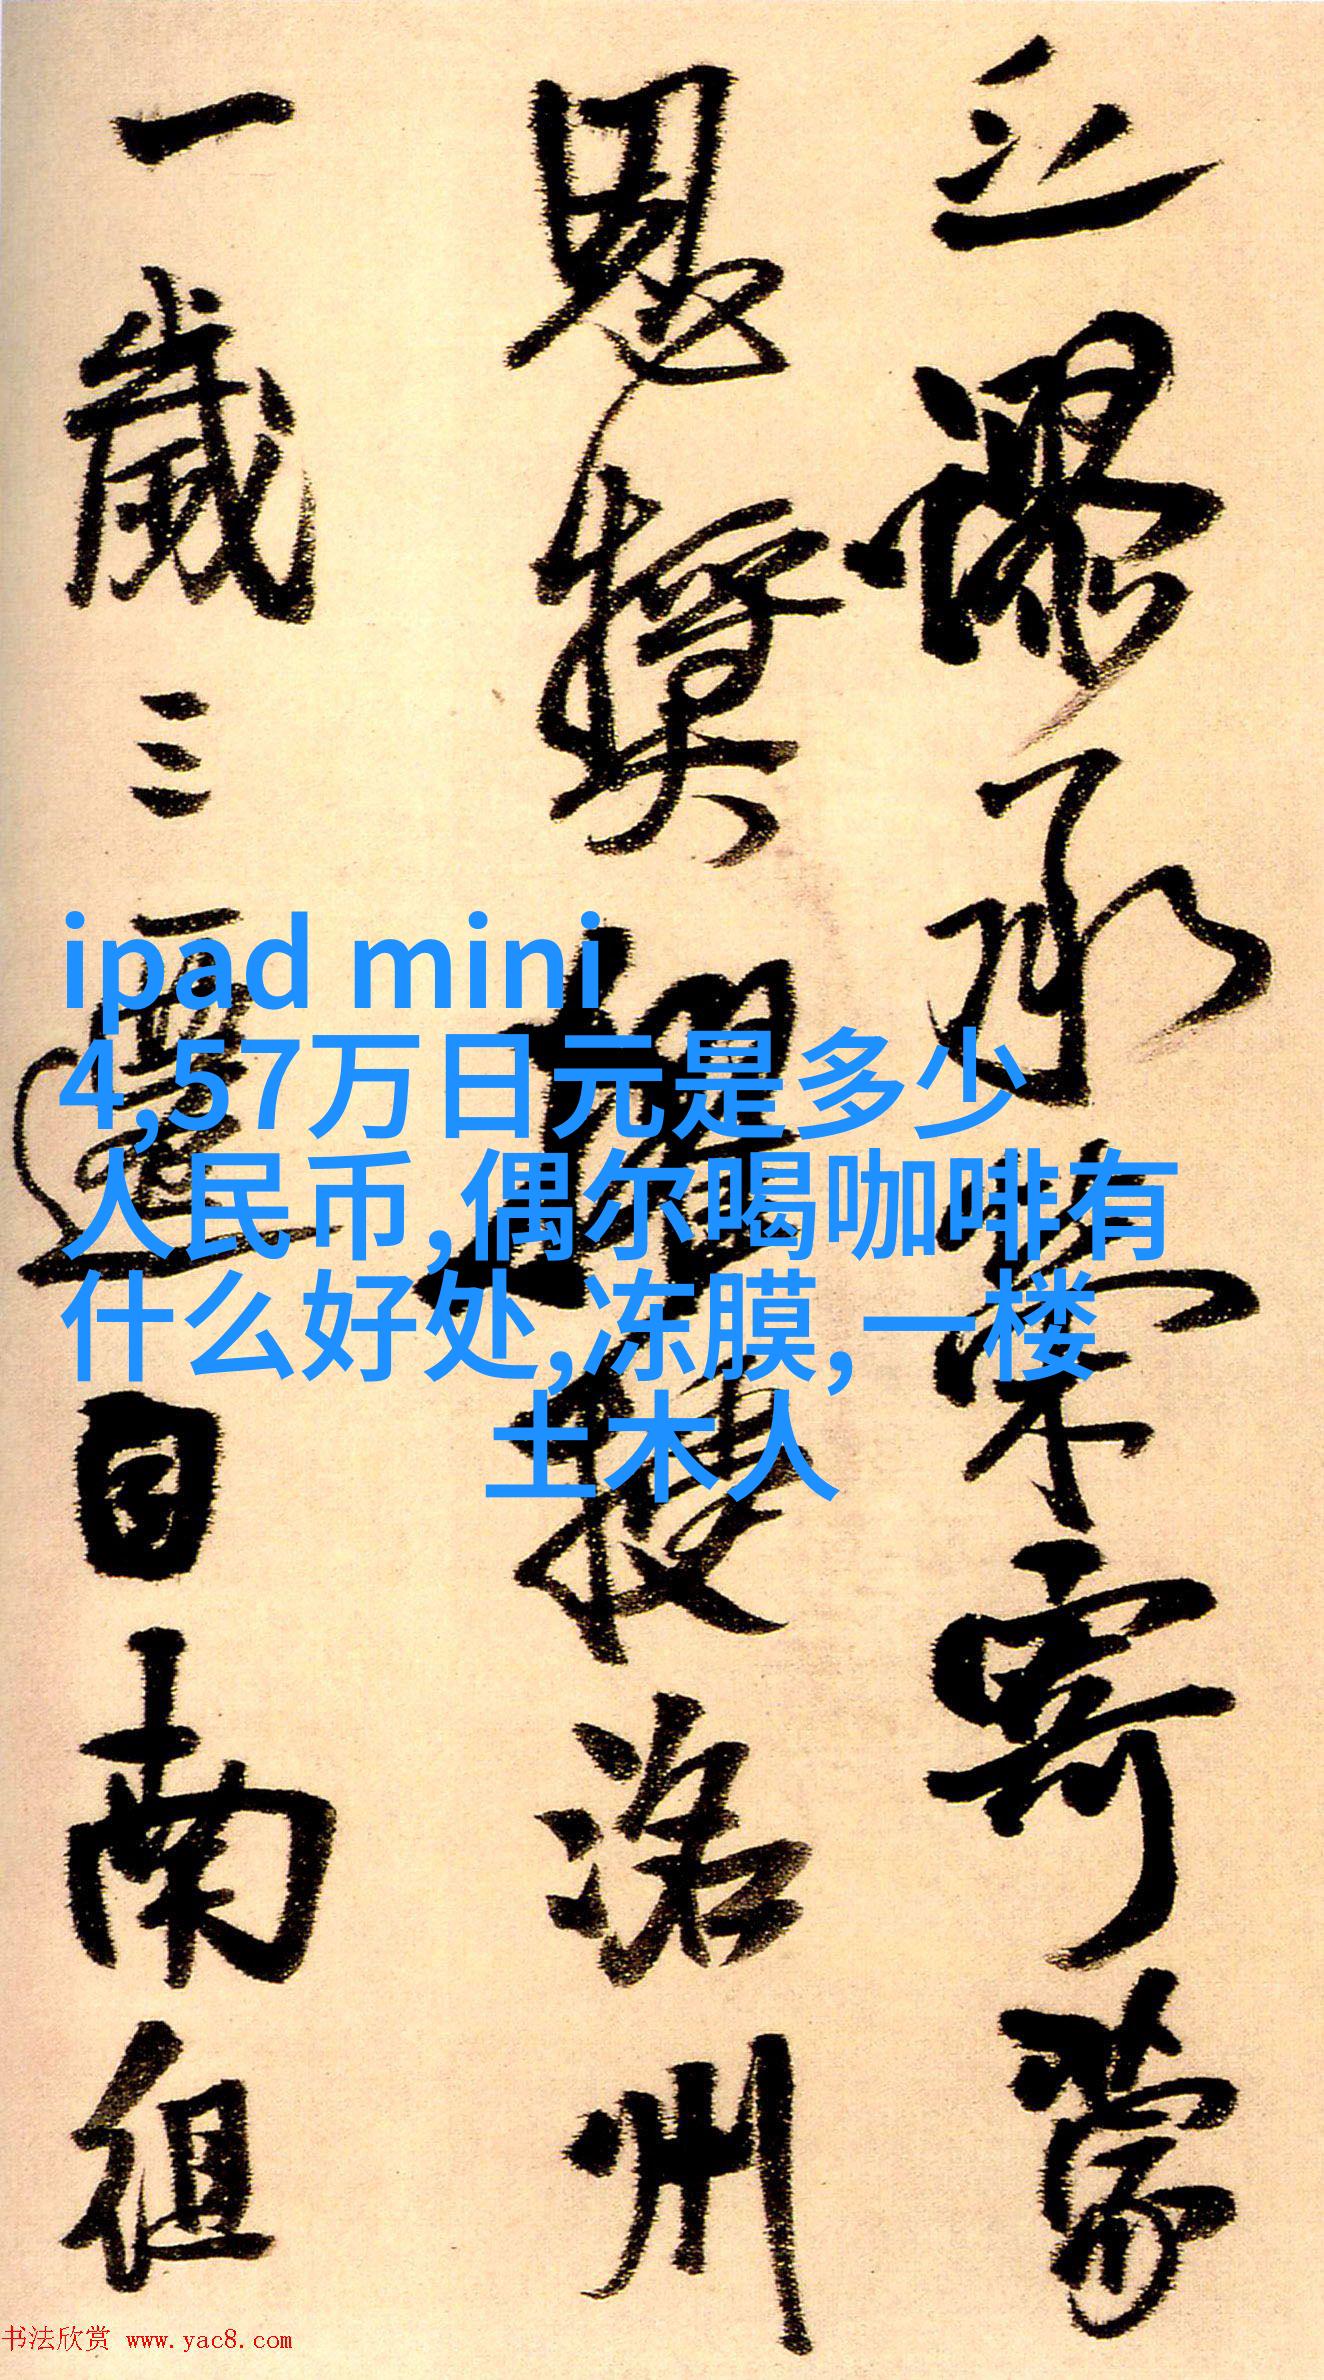 立謬承榮寄蒙
恩獎擢授洛州
一歲三遷自南徂
ipad mini
4,57万日元是多少
人民币,偶尔喝咖啡有
什么好处,冻膜, 一楼
土木人
书法欣赏 www.yac8.com